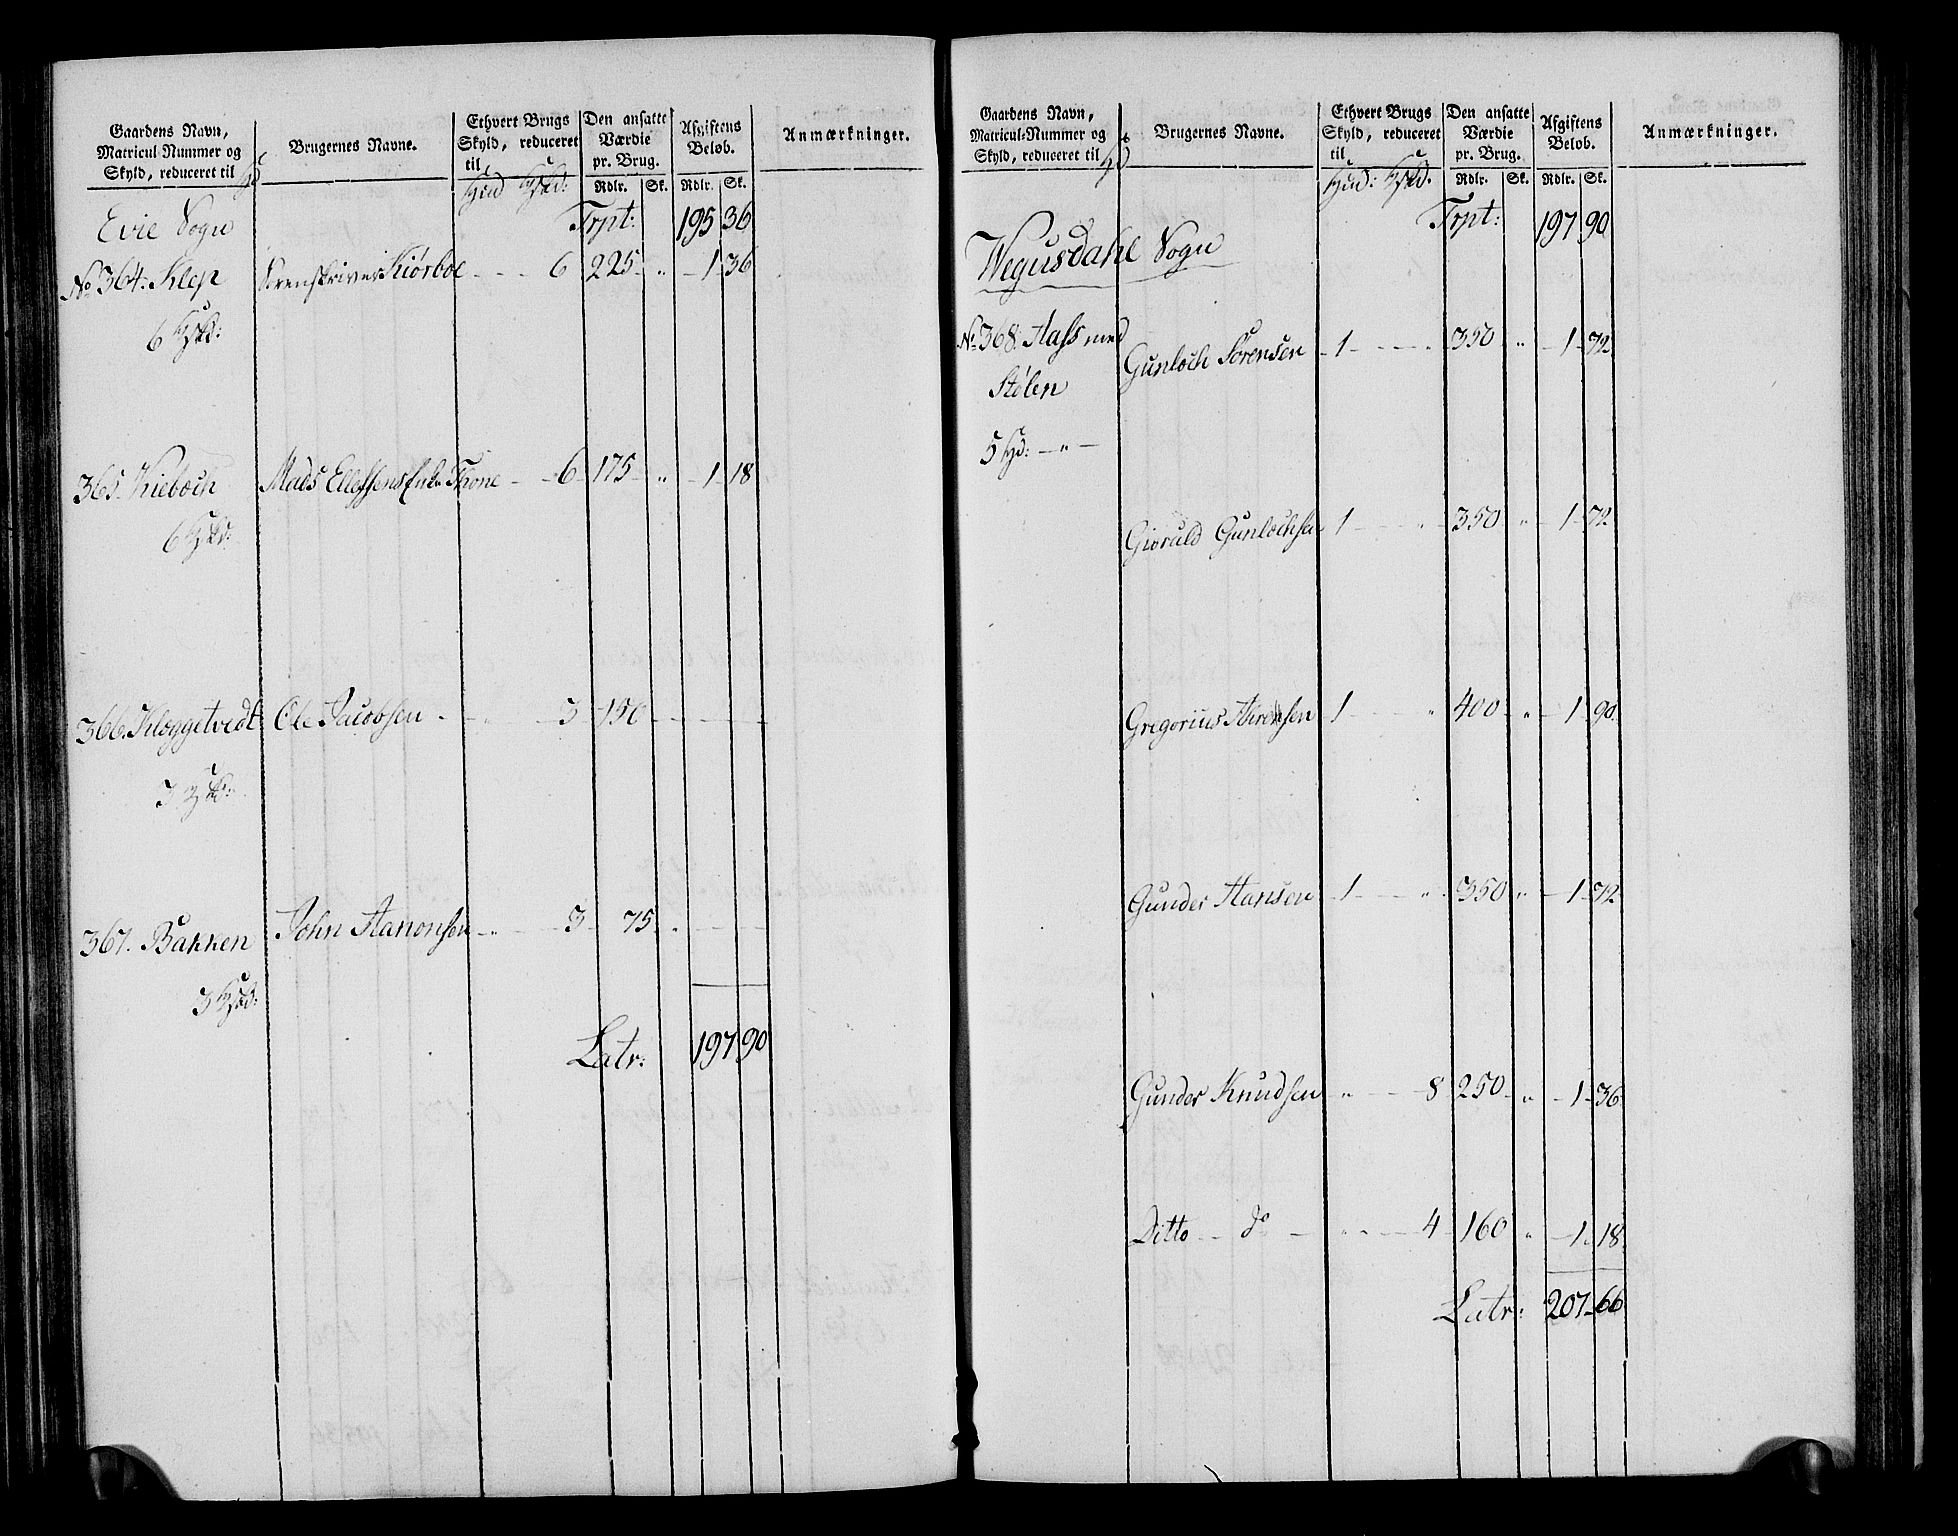 Gaardens Navn, Matricul-Nummer og Skyld, reduceret til
Brugernes Navne.
Ethvert Brugs Skyld, reduceret til
Den ansatte Værdie pr. Brug.
Afgiftens Beløb.
Anmærkninger.
Rdlr. Sk. Rdlr. Sk.
Evie Sogn Trpt: 195 36
No 364: Klep Sorenskriver Kiørboe 6 225 " 1 36
6
365. Kieboch Mads Ellefsens Enke Thone 6 175 " 1 18
6
366. Kloggetvedt Ole Jacobsen " 3 150
3
367. Bakken John Aanonsen " 3 75 "
3
Latr: 197 90
Gaardens Navn, Matricul-Nummer og Skyld, reduceret til
Brugernes Navne.
Ethvert Brugs Skyld, reduceret til
Den ansatte Værdie pr. Brug.
Afgiftens Beløb.
Anmærkninger.
Rdlr. Sk. Rdlr. Sk.
Trpt: 197 90
Wegusdahl Sogn
No 368. Aass med Gunloch Sørensen 1 " 350 " 1 72
Stølen
5 Hd: "
Giøruld Gunlochsen 1 " 350 " 1 72
Gregorius 1 " 400 " 1 90
Gunder Hansen 1 " 350 " 1 72
Gunder Knudsen " 8 250 " 1 36
Ditto do " 4 160 " 1 18
Latr: 207 66